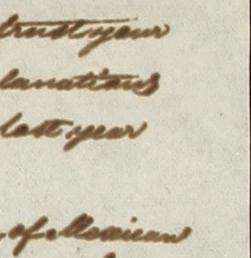 trust your
lanations
last year
of Mexican